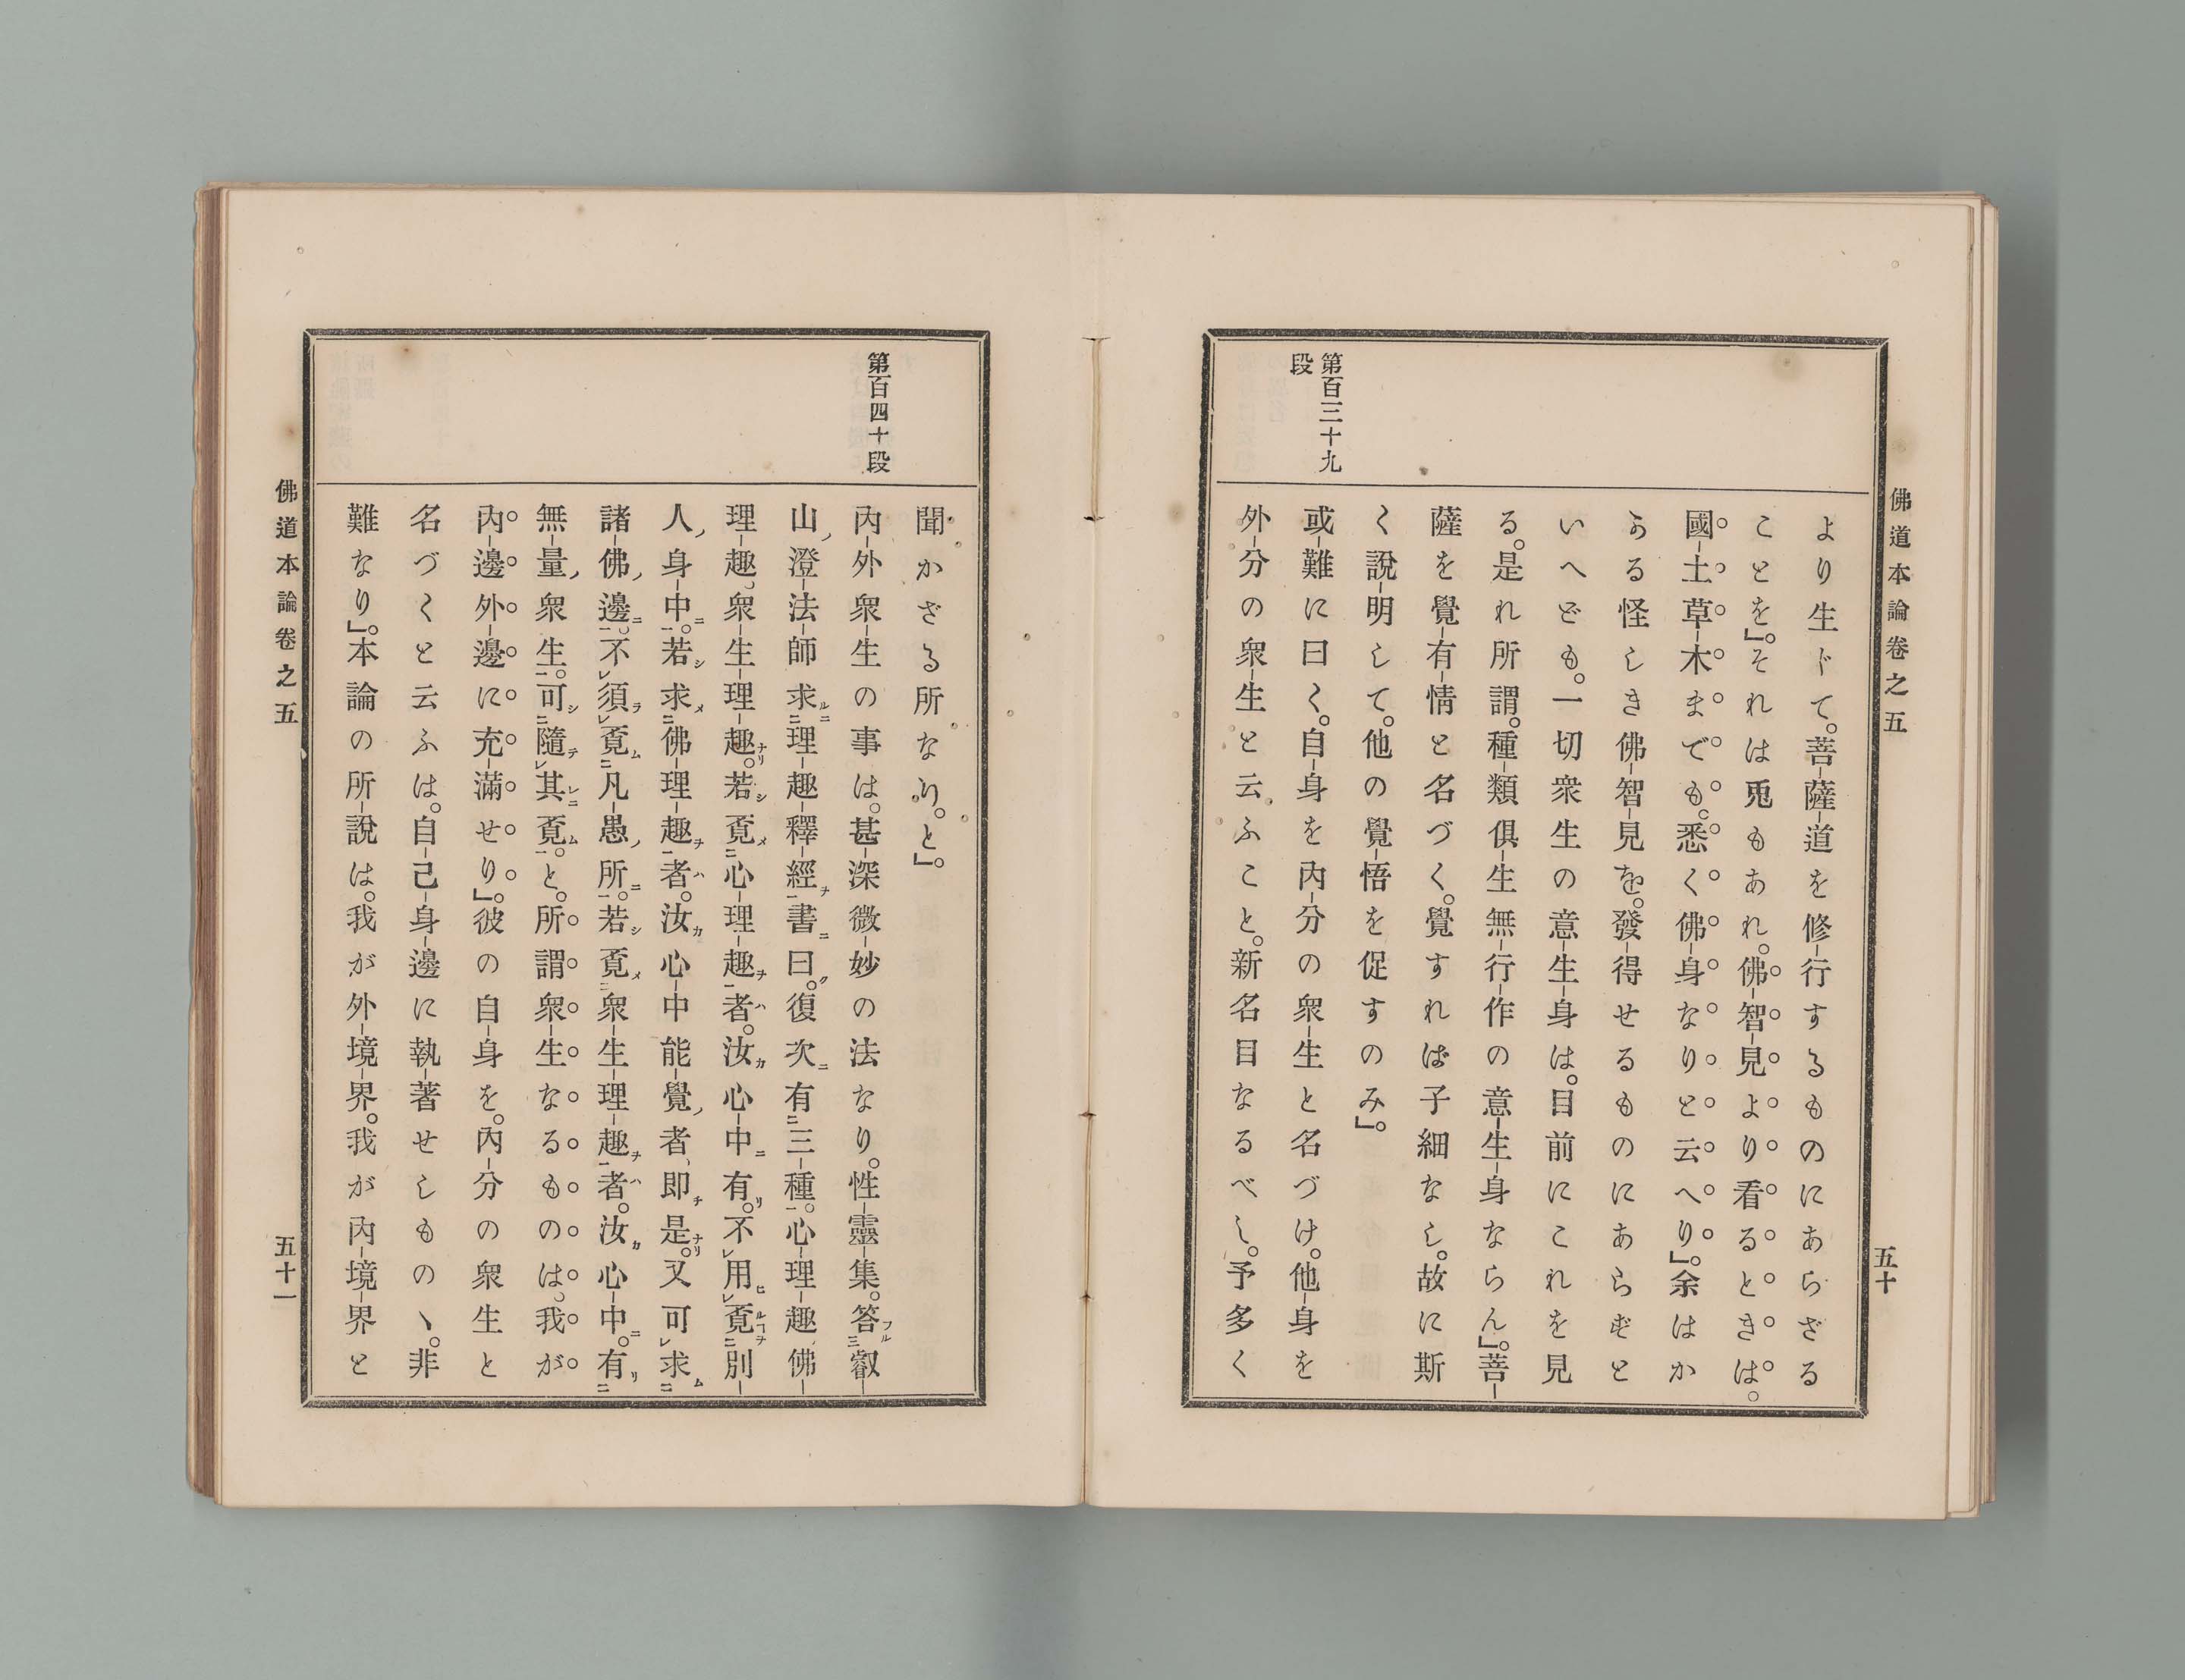 佛道本論卷之五
五十
第百三十九
段
より生ドて。菩薩道を修行するものにあらざる
ことを』。それは兎もあれ。佛智見より看るときは。
國土草木までも。悉く佛身なりと云へり』。余はか
ゝる怪しき佛智見を。發得せるものにあらずと
いへども。一切衆生の意生身は。目前にこれを見
る。是れ所謂。種類俱生無行作の意生身ならん』。菩
薩を覺有情と名づく。覺すれば子細なし。故に斯
く說明して。他の覺悟を促すのみ』。
或難に曰く。自身を內分の衆生と名づけ。他身を
外分の衆生と云ふこと。新名目なるべし。予多く
第百四十段
聞かざる所なり。と』。
內外衆生の事は。甚深微妙の法なり。性靈集。答フル三叡
山ノ澄法師求ルニ二理趣釋經ヲ一書ニ曰ク。復次ニ有二三種一。心理趣佛
理趣、衆生理趣ナリ。若シ覓メ二心理趣ヲ一者ハ。汝カ心中ニ有リ。不レ用ヒレ覓ルヿヲ二別
人ノ身中ニ一。若シ求メ二佛理趣ヲ一者ハ。汝カ心中能覺ノ者、即チ是ナリ。又可レ求ム二
諸佛ノ邊ニ一。不レ須ラレ覓ム二凡愚ノ所ニ一。若シ覓メ二衆生理趣ヲ一者ハ。汝カ心中ニ。有リ二
無量ノ衆生一。可シ二隨テレ其レニ覓ム一。と。所謂衆生なるものは。我が
內邊外邊に充滿せり』。彼の自身を。內分の衆生と
名づくと云ふは。自己身邊に執著せしものヽ。非
難なり』。本論の所說は。我が外境界。我が內境界と
佛道本論卷之五
五十一